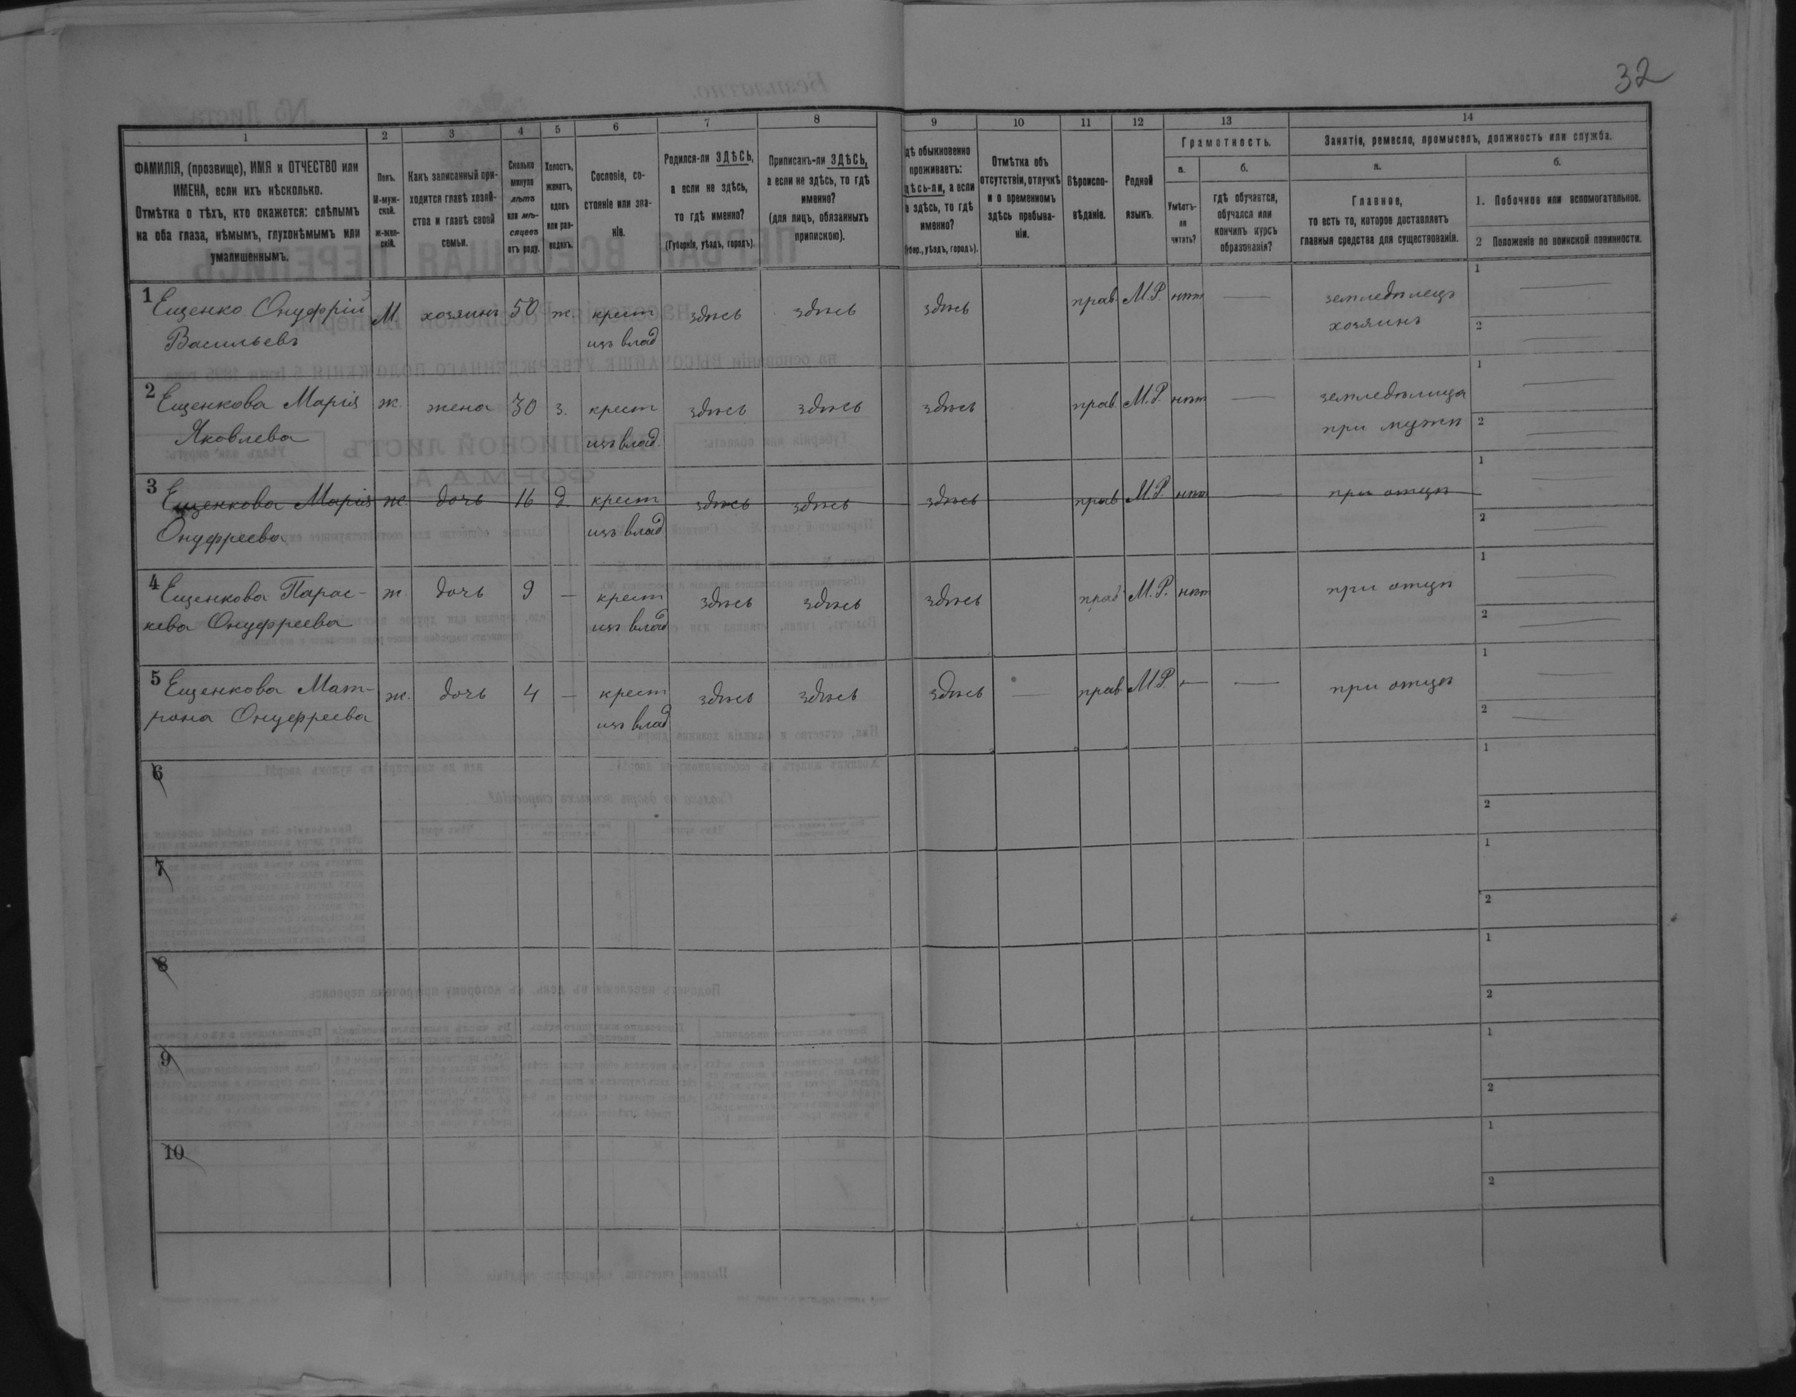 32
1 2 3 4 5 6 7 8 9 10 11 12 13 14
ФАМИЛІЯ, (прозвище), ИМЯ и ОТЧЕСТВО или
ИМЕНА, если ихъ нѣсколько.
Отмѣтка о тѣхъ, кто окажется: слѣпымъ
на оба глаза, нѣмымъ, глухонѣмымъ или
умалишеннымъ.
Полъ.
М-муж-
ской.
ж-жен-
скій.
Какъ записанный при-
ходится главѣ хозяй-
ства и главѣ своей
семьи.
Сколько
минуло
лѣтъ
или мѣ-
сяцевъ
отъ роду.
Холостъ,
женатъ,
вдовъ
или раз-
веденъ.
Сословіе, со-
стояніе или зва-
ніе.
Родился-ли ЗДѢСЬ,
а если не здѣсь,
то гдѣ именно?
(Губернія, уѣздъ, городъ).
Приписанъ-ли ЗДѢСЬ,
а если не здѣсь, то гдѣ
именно?
(для лицъ, обязанныхъ
припискою).
дѣ обыкновенно
проживаетъ:
дѣсь-ли, а если
е здѣсь, то гдѣ
именно?
убер., уѣздъ, городъ).
Отмѣтка объ
отсутствіи, отлучкѣ
и о временномъ
здѣсь пребыва-
ніи.
Вѣроиспо-
вѣданіе.
Родной
языкъ.
Грамотность.
а.
Умѣетъ-
ли
читать?
б.
гдѣ обучается,
обучался или
кончилъ курсъ
образованія?
Занятіе, ремесло, промыселъ, должность или служба.
а.
Главное,
то есть то, которое доставляетъ
главныя средства для существованія.
б.
1. Побочное или вспомогательное.
2 Положеніе по воинской повинности.
1 Ещенко Онуфрій М. хозяинъ 50 ж. крест здѣсь здѣсь здѣсь прав М.Р. нѣт — земледѣлецъ 1 —
Васильевъ изъ влад хозяинъ 2 —
2 Ещенкова Марія ж. жена 30 з. крест здѣсь здѣсь здѣсь прав М.Р. нѣт — земледѣлица 1 —
Яковлева изъ влад. при мужѣ 2 —
3 Ещенкова Марія ж. дочь 16 д. крест здѣсь здѣсь здѣсь прав М.Р. нѣт — при отцѣ 1 —
Онуфреева изъ влад 2 —
4 Ещенкова Парас- ж дочь 9 — крест здѣсь здѣсь здѣсь прав М.Р. нѣт при отцѣ 1 —
кева Онуфреева изъ влад 2 —
5 Ещенкова Мат- ж. дочь 4 — крест здѣсь здѣсь здѣсь — прав М.Р. — — при отцѣ 1 —
рона Онуфреева изъ влад 2 —
6 1
2
7 1
2
8 1
2
9 1
2
10 1
2